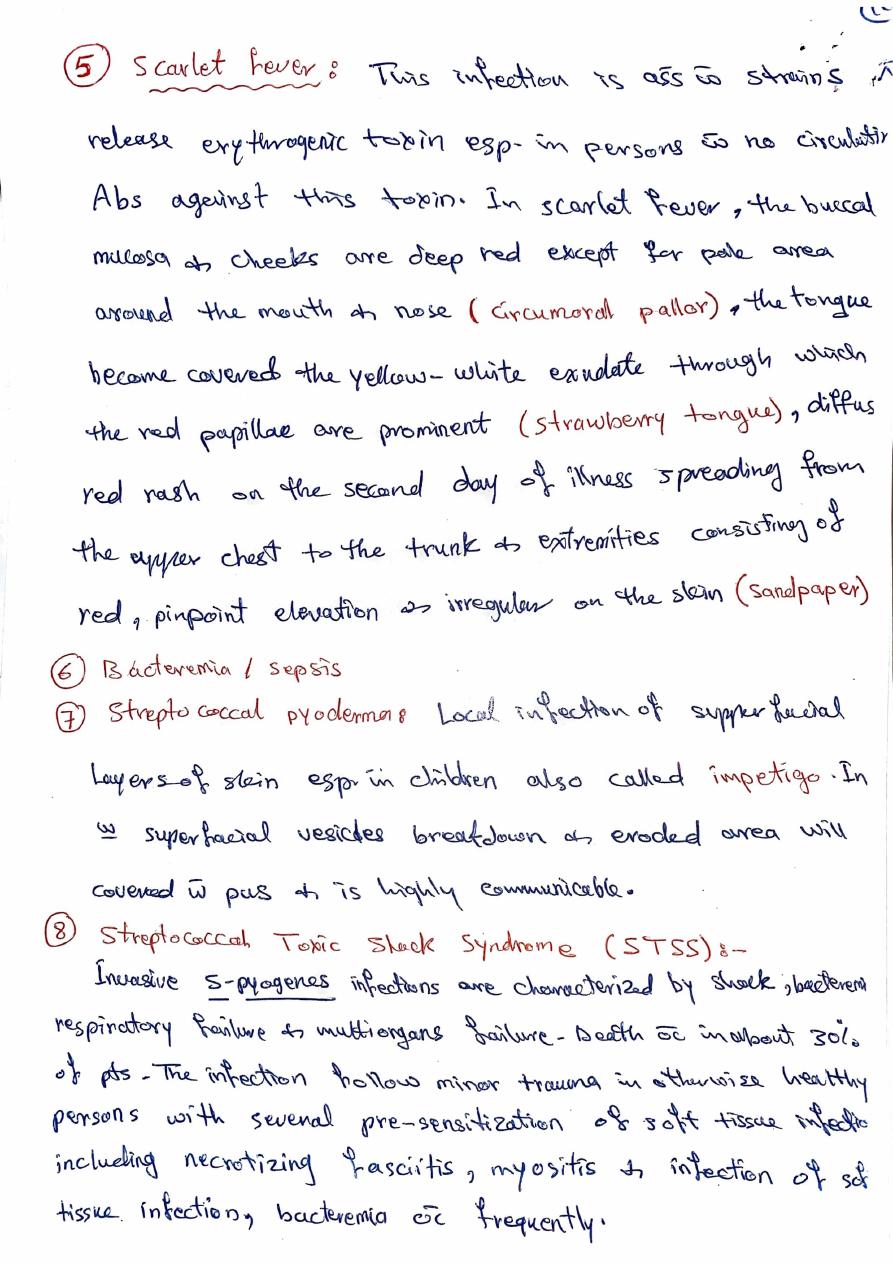 ⑤ Scarlet fever: This infection is ass c̄ strains
release erythrogenic toxin esp. in persons c̄ no circulatin
Abs against this toxin. In scarlet fever, the buccal
mucosa & cheeks are deep red except for pale area
around the mouth & nose (Circumoral pallor), the tongue
become covered the yellow-white exudate through which
the red papillae are prominent (strawberry tongue), diffus
red rash on the second day of illness spreading from
the upper chest to the trunk & extremities consisting of
red, pinpoint elevation & irregular on the skin (sandpaper)
⑥ Bacteremia / sepsis
⑦ Streptococcal pyoderma: Local infection of supperfacial
Layers of skin esp. in children also called impetigo. In
superfacial vesicles breakdown & eroded area will
covered w̄ pus & is highly communicable.
⑧ Streptococcal Toxic Shock Syndrome (STSS):-
Invasive S-pyogenes infections are characterized by shock, bacteremi
respiratory failure & multiorgans failure - Death occ in about 30%
of pts - The infection follow minor trauma in otherwise healthy
persons with several pre-sensitization of soft tissue infectio
including necrotizing fasciitis, myositis & infection of sof
tissue infection, bacteremia occ frequently.